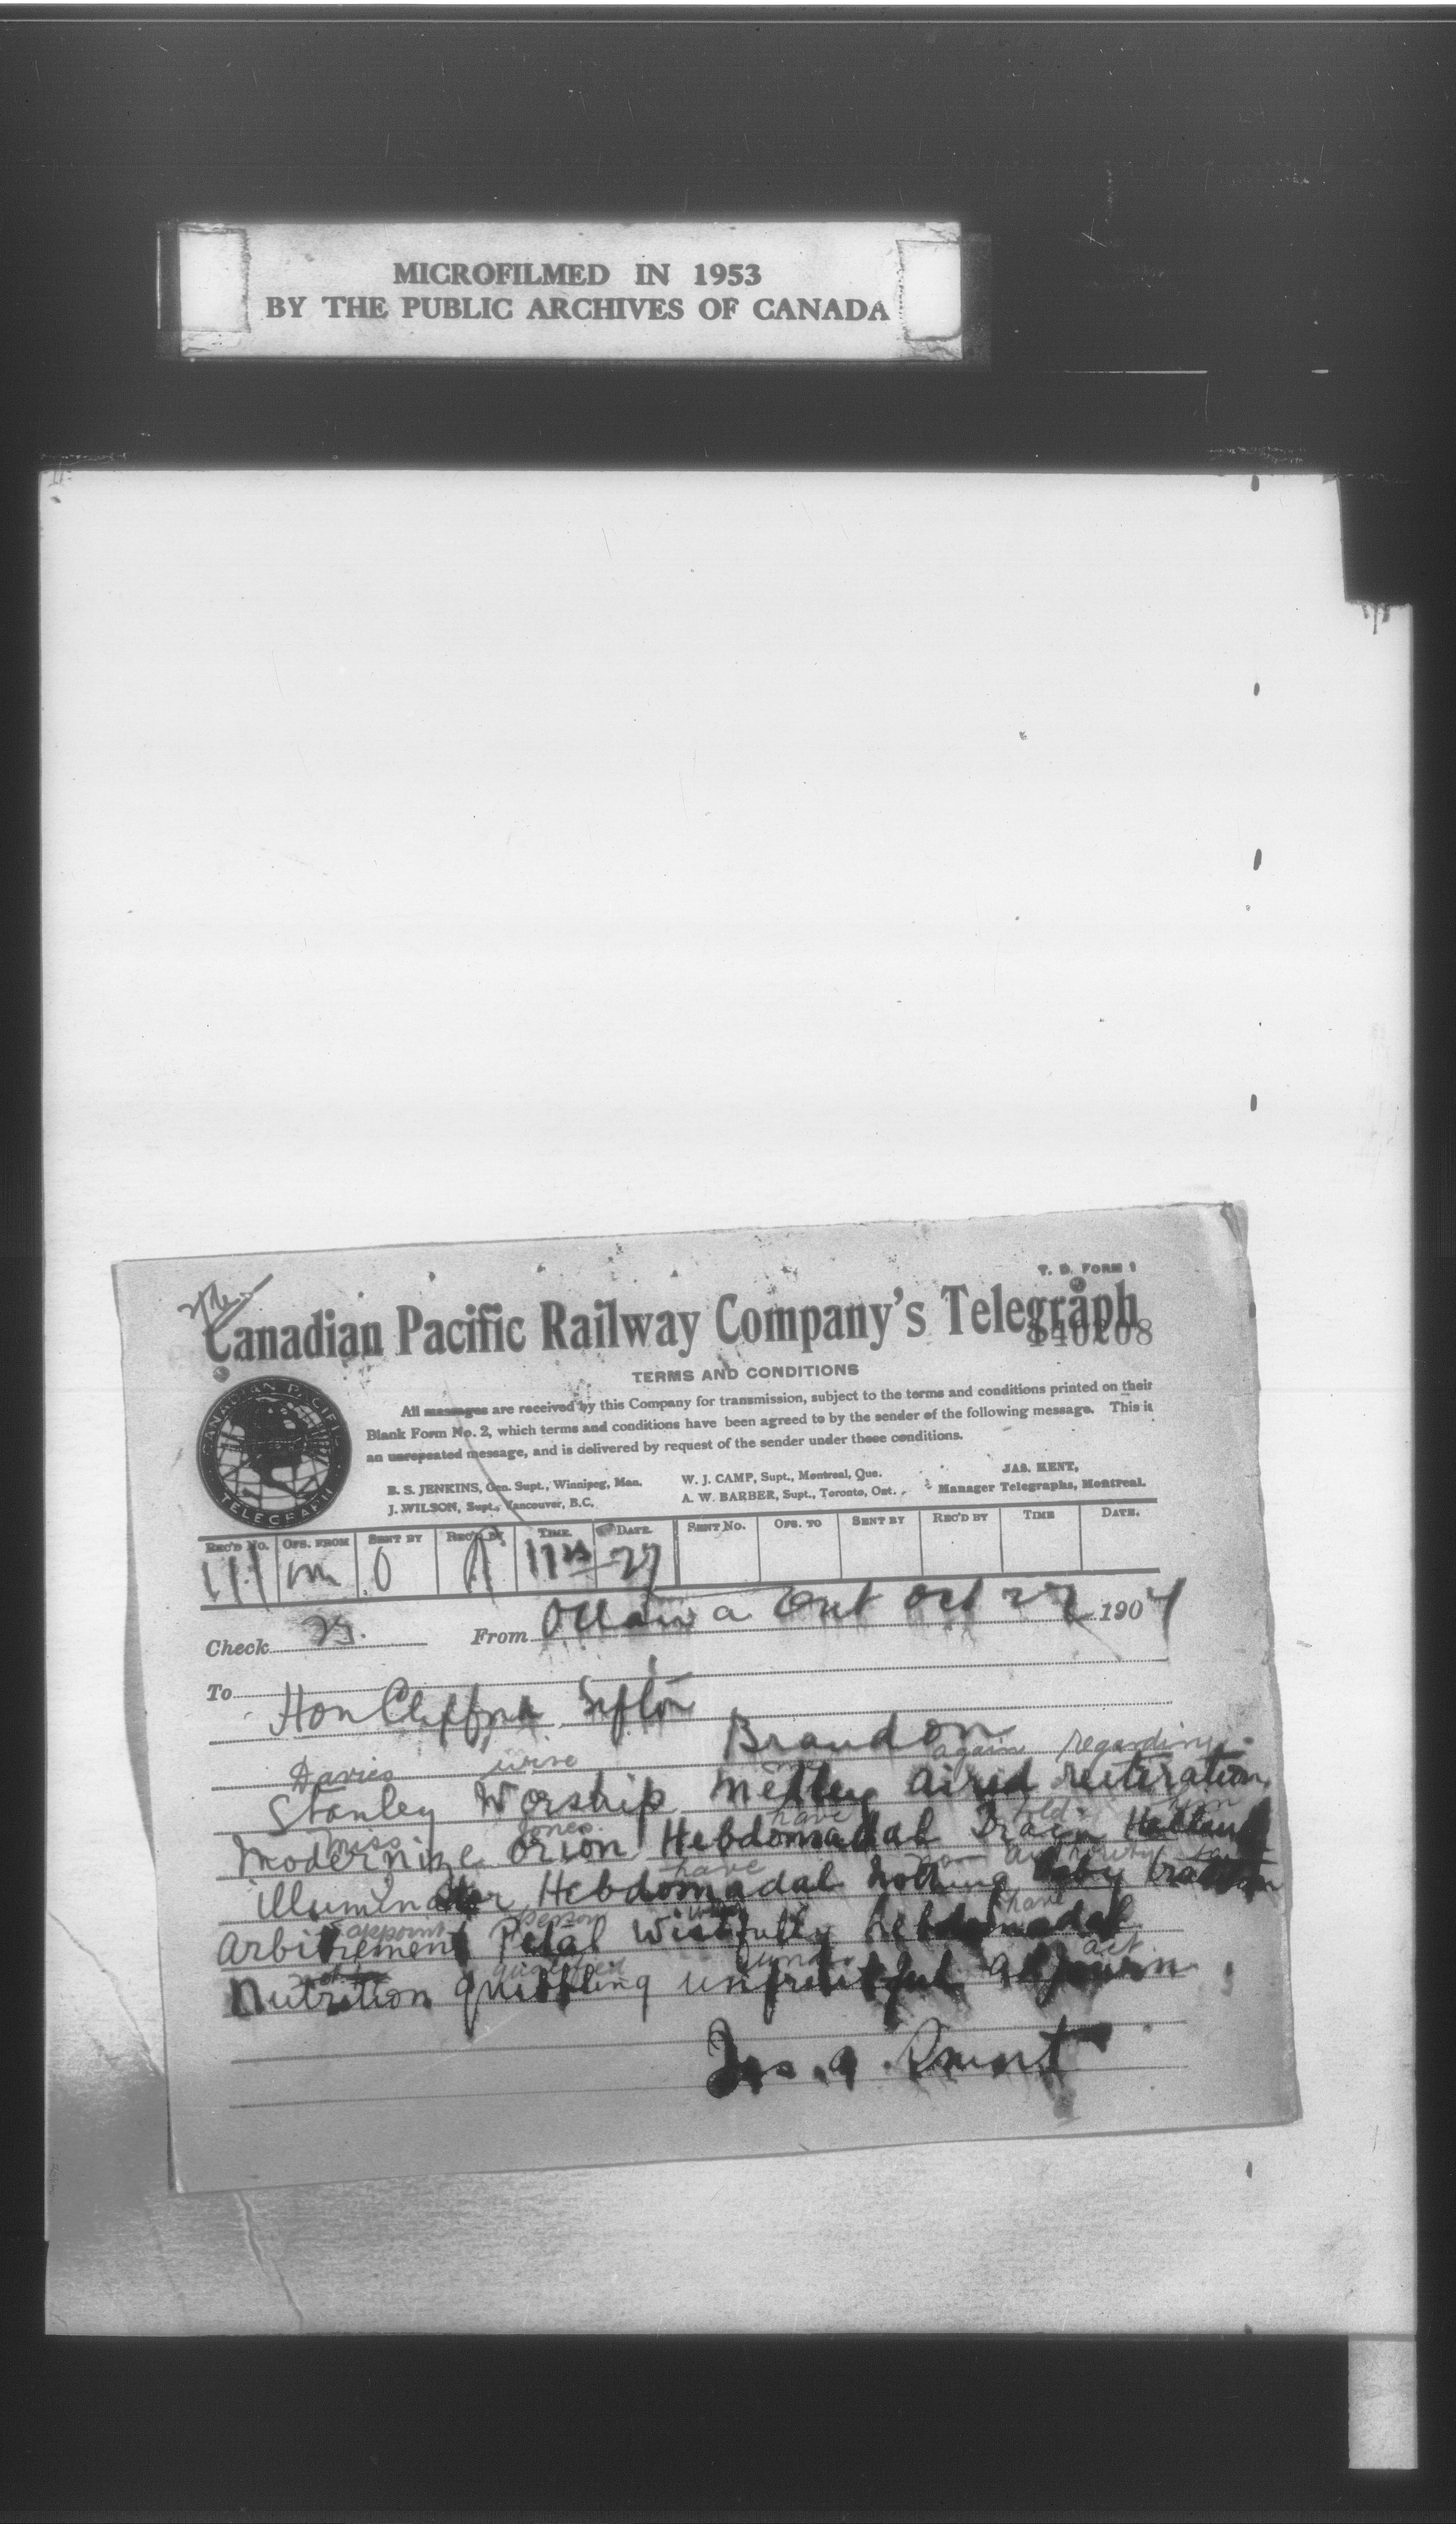 MICROFILMED IN 1953
BY THE PUBLIC ARCHIVES OF CANADA
T. D. FORM 1
Canadian Pacific Railway Company's Telegraph
140208
TERMS AND CONDITIONS
All messages are received by this Company for transmission, subject to the terms and conditions printed on their
Blank Form No. 2, which terms and conditions have been agreed to by the sender of the following message. This is
an unrepeated message, and is delivered by request of the sender under these conditions.
B. S. JENKINS, Gen. Supt., Winnipeg, Man.
J. WILSON, Supt., Vancouver, B.C.
W. J. CAMP, Supt., Montreal, Que.
A. W. BARBER, Supt., Toronto, Ont.
JAS. KENT,
Manager Telegraphs, Montreal.
CANADIAN PACIFIC
TELEGRAPH
REC'D No. OFS. FROM SENT BY REC'D BY TIME. DATE. SENT No. OFS. TO SENT BY REC'D BY TIME DATE.
111 m O 27
Check 23. From Ottawa Ont Oct 27 1904
To
Hon Clifford Sifton
Brandon
Davies wire me again regarding
Stanley Worship Medley aired reiteration
Miss Jones. have told him
Modernize Orion Hebdomadal Drain
have no authority to
illuminator Hebdomadal nothing baby
appoint person will have
Arbitrement Petal Wistfully hebdomadal
qualified under act
Nutrition quibbling unfruitful adjourn
Jas. A. Smart